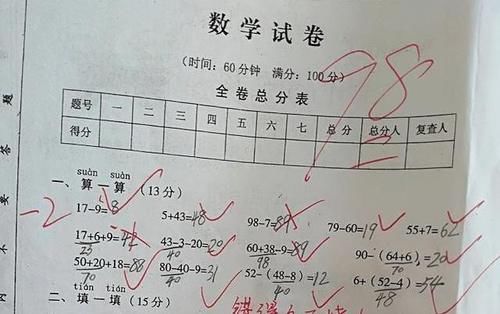 数学试卷
(时间：60分钟 满分：100分)
98
全卷总分表
题号 一 二 三 四 五 六 七 总分 总分人 复查人
得分
suàn suàn
一、算一算(13分)
-2
17-9=8 5+43=48 98-7=89 79-60=19 55+7=62
17+6+9=42 43-3-20=20 60+38-9=89 90-(64+6)=20
23 40 98 70
50+20+18=88 80-40-9=31 52-(48-8)=12 6+(52-4)=54
70 40 40 48
tián tián
二、填一填(15分)
题
答
要
不
内